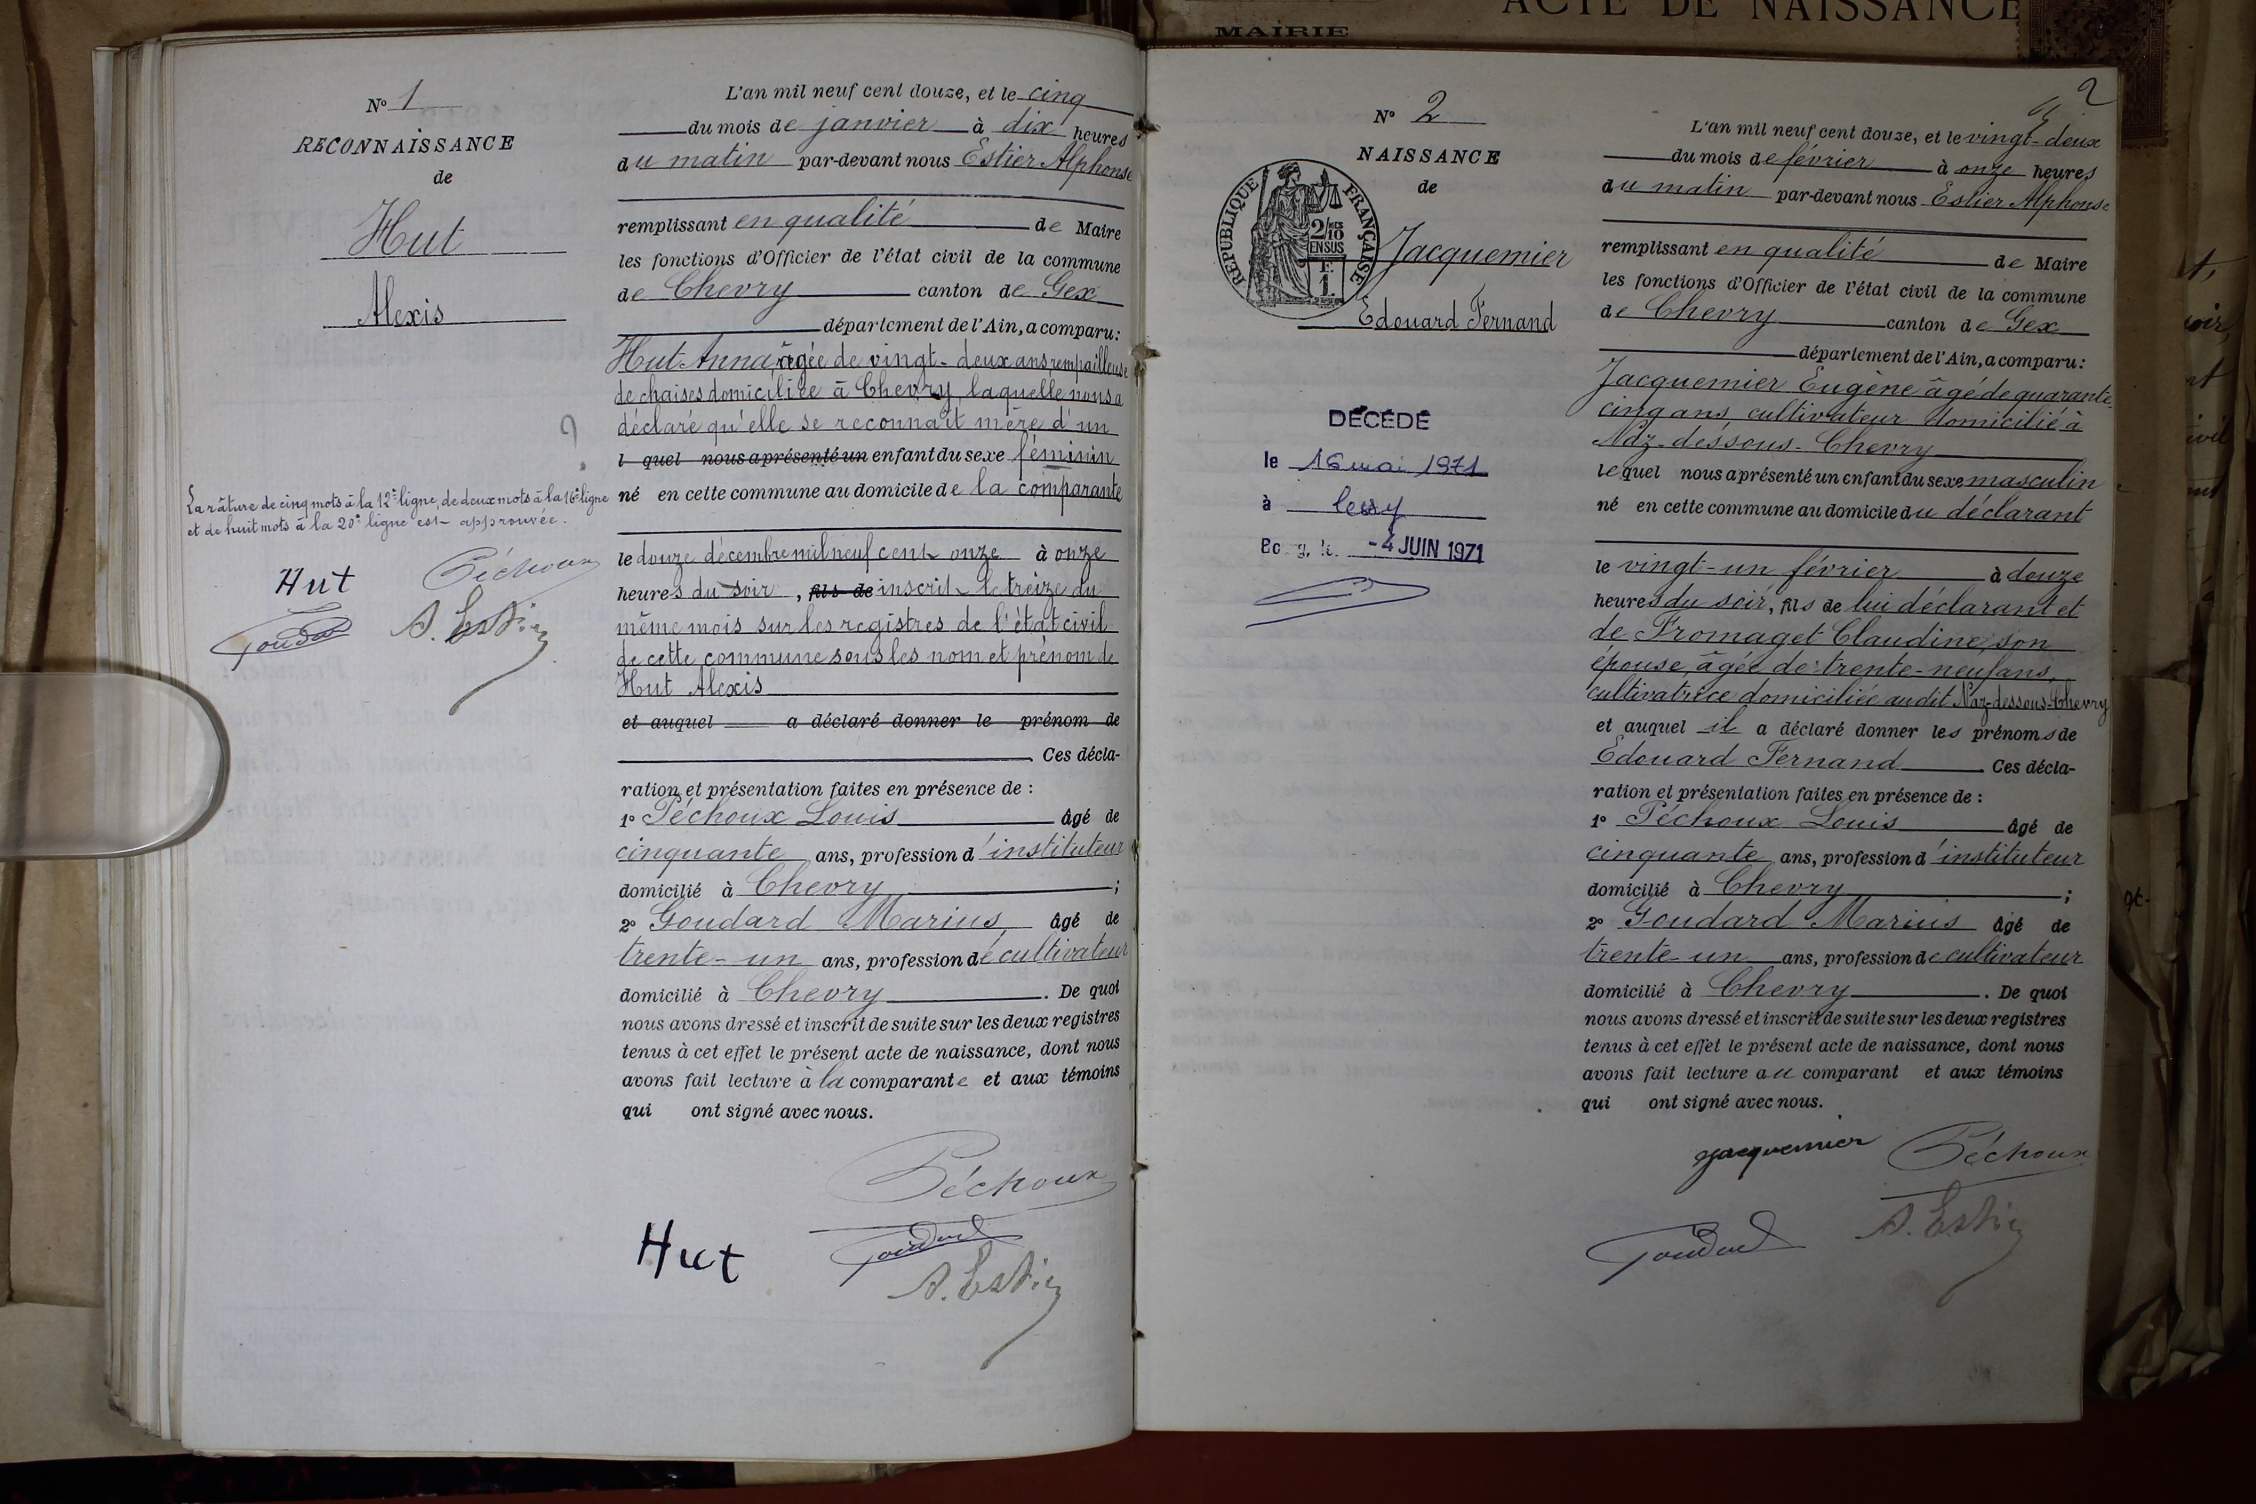 ACTE DE NAISSANCE
MAIRIE
N° 1
RECONNAISSANCE
de
Hut
Alexis
La râture de cinq mots à la 12e ligne, de deux mots à la 16e ligne
et de huit mots à la 20e ligne est approuvée.
Hut Péchoux
Goudard A. Estier
L'an mil neuf cent douze, et le cinq
du mois de janvier à dix heures
du matin par-devant nous Estier Alphonse
remplissant en qualité de Maire
les fonctions d'Officier de l'état civil de la commune
de Chevry canton de Gex
département de l'Ain, a comparu:
Hut Anna, âgée de vingt-deux ans, rempailleuse
de chaises domiciliée à Chevry, laquelle nous a
déclaré qu'elle se reconnaît mère d'un
l quel nous a présenté un enfant du sexe féminin
né en cette commune au domicile de la comparante
le douze décembre mil neuf cent onze à onze
heures du soir, fils de inscrit le treize du
même mois sur les registres de l'état civil
de cette commune sous les nom et prénom de
Hut Alexis
et auquel a déclaré donner le prénom de
Ces décla-
ration et présentation faites en présence de :
1° Péchoux Louis âgé de
cinquante ans, profession d'instituteur
domicilié à Chevry ;
2° Goudard Marius âgé de
trente-un ans, profession de cultivateur
domicilié à Chevry . De quoi
nous avons dressé et inscrit de suite sur les deux registres
tenus à cet effet le présent acte de naissance, dont nous
avons fait lecture à la comparante et aux témoins
qui ont signé avec nous.
Péchoux
Hut Goudard
A. Estier
2
N° 2
NAISSANCE
de
RÉPUBLIQUE FRANÇAISE
2/10
EN SUS
F.
1
Jacquemier
Edouard Fernand
DÉCÉDÉ
le 16 mai 1971
à
Bourg, le -4 JUIN 1971
L'an mil neuf cent douze, et le vingt-deux
du mois de février à onze heures
du matin par-devant nous Estier Alphonse
remplissant en qualité de Maire
les fonctions d'Officier de l'état civil de la commune
de Chevry canton de Gex
département de l'Ain, a comparu:
Jacquemier Eugène âgé de quarante-
cinq ans, cultivateur domicilié à
Naz-dessous-Chevry
lequel nous a présenté un enfant du sexe masculin
né en cette commune au domicile du déclarant
le vingt-un février à douze
heures du soir, fils de lui déclarant et
de Fromaget Claudine, son
épouse, âgée de trente-neuf ans,
cultivatrice domiciliée audit Naz-dessous-Chevry
et auquel il a déclaré donner les prénoms de
Edouard Fernand . Ces décla-
ration et présentation faites en présence de :
1° Péchoux Louis âgé de
cinquante ans, profession d'instituteur
domicilié à Chevry ;
2° Goudard Marius âgé de
trente-un ans, profession de cultivateur
domicilié à Chevry . De quoi
nous avons dressé et inscrit de suite sur les deux registres
tenus à cet effet le présent acte de naissance, dont nous
avons fait lecture au comparant et aux témoins
qui ont signé avec nous.
Jacquemier Péchoux
Goudard A. Estier